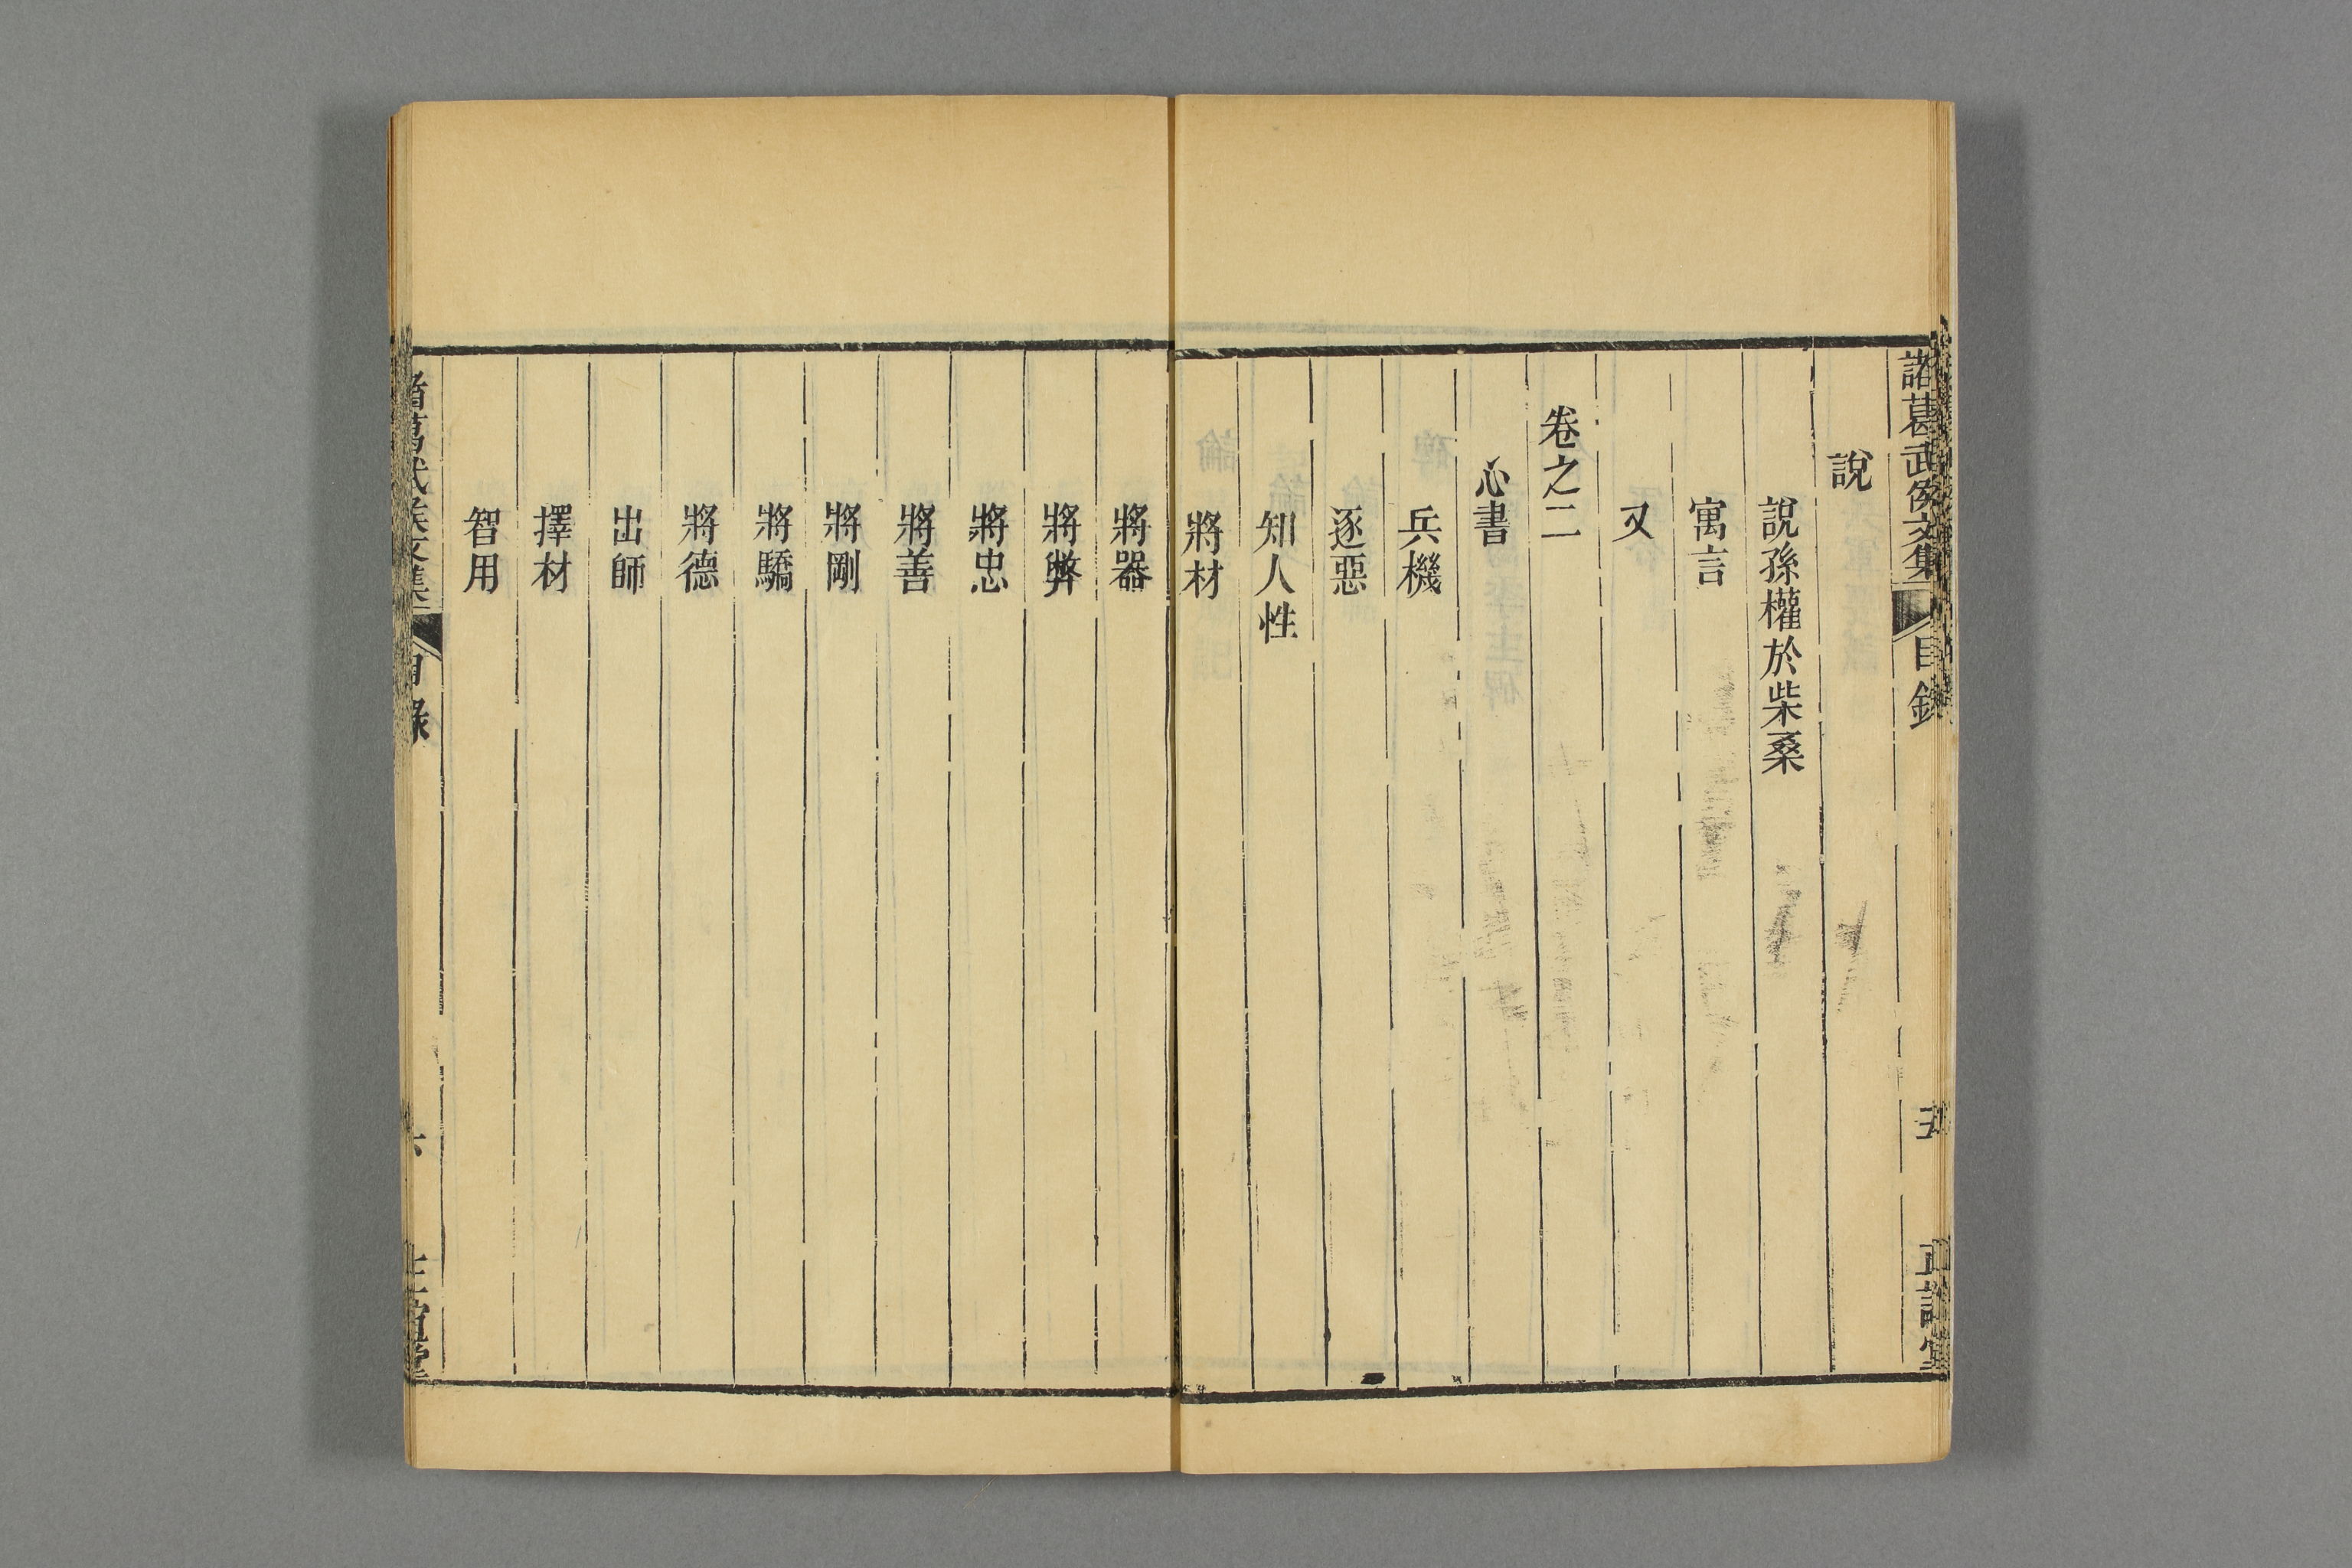 諸葛武侯文集 目錄 五 正誼堂
說
說孫權於柴桑
寓言
又
卷之二
心書
兵機
逐惡
知人性
將材
將器
將弊
將忠
將善
將剛
將驕
將德
出師
擇材
智用
諸葛武侯文集 目錄 六 正誼堂